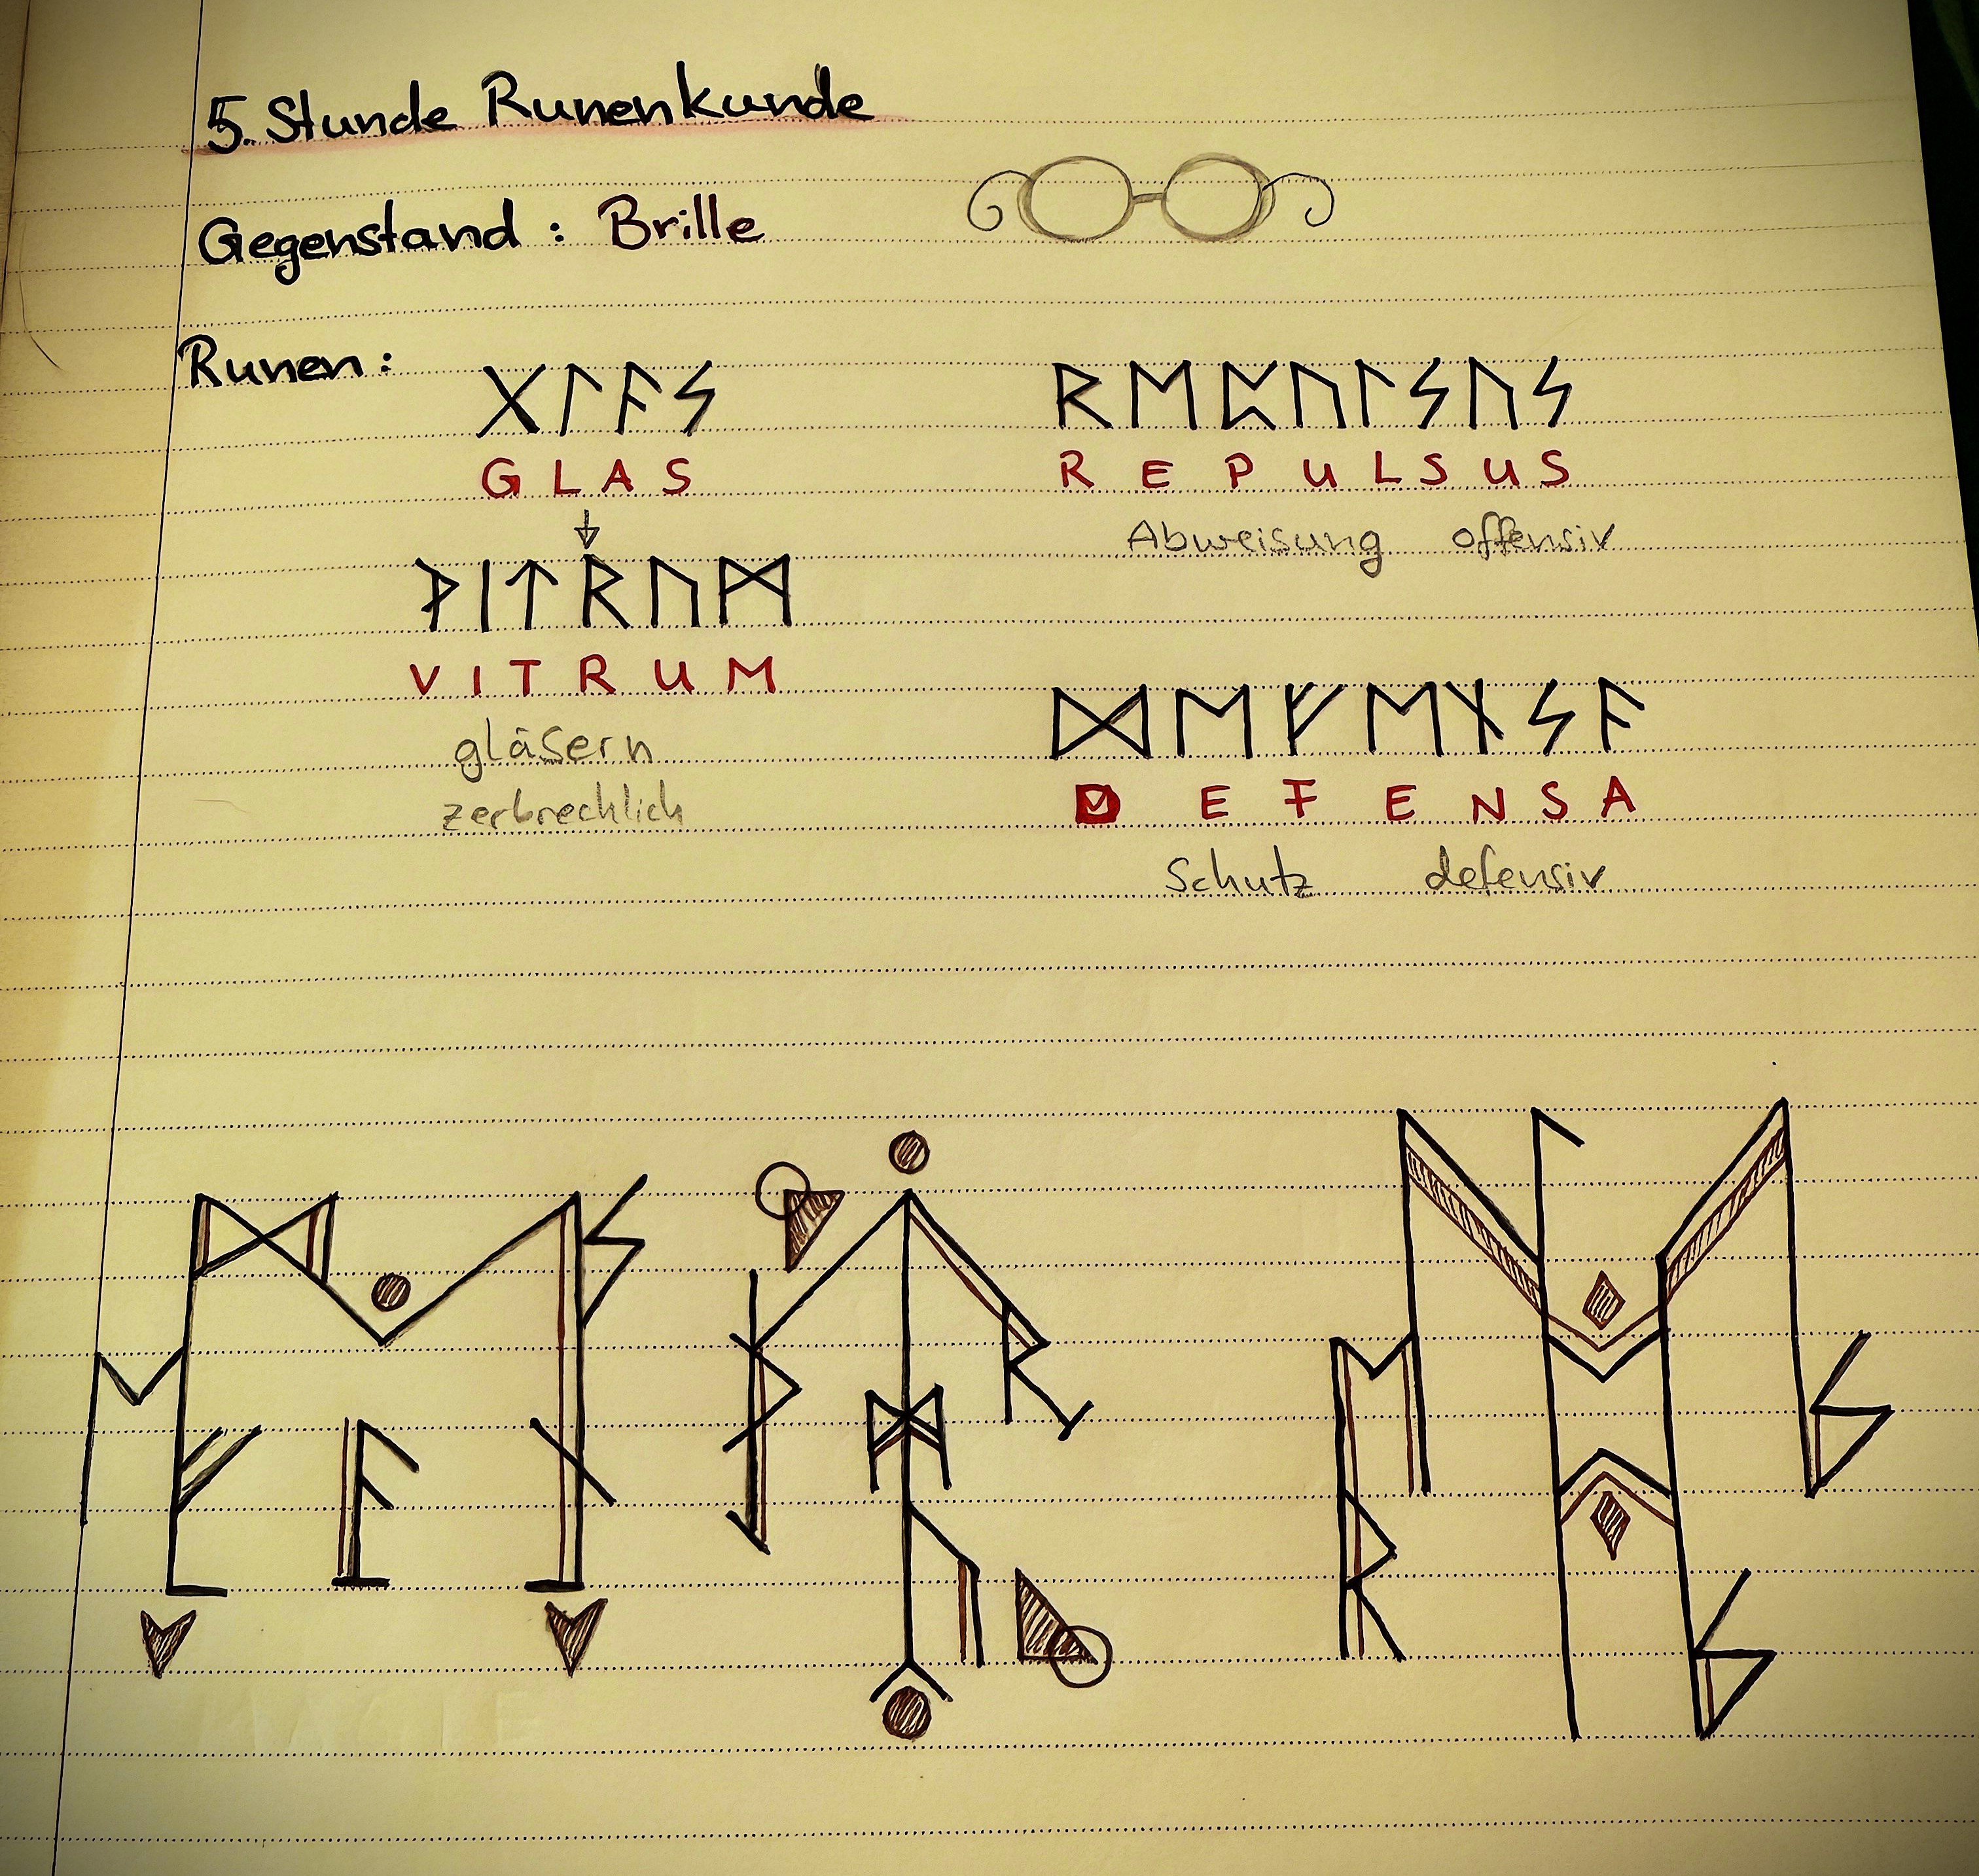 5. Stunde Runenkunde
Gegenstand : Brille
Runen :
ᚷᛚᚨᛋ
GLAS
ᚹᛁᛏᚱᚢᛗ
VITRUM
gläsern
zerbrechlich
ᚱᛖᛈᚢᛚᛋᚢᛋ
REPULSUS
Abweisung offensiv
ᛞᛖᚠᛖᚾᛋᚨ
DEFENSA
Schutz defensiv